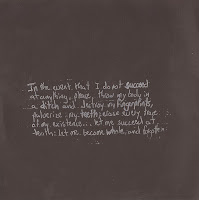 In the event that I do not succeed
at anything, please, throw my body in
a ditch and destroy my fingerprints,
pulverize my teeth, erase every trace
of my existence... let me succeed at
truth: let me become whole and